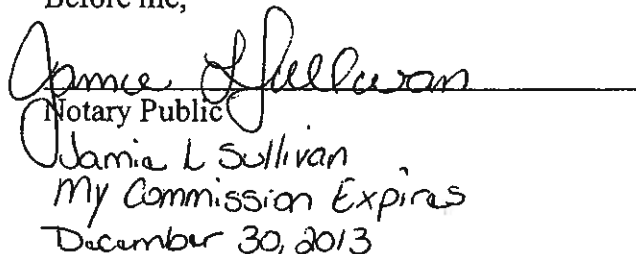 Before me,
Jamie L Sullivan
Notary Public
Jamie L Sullivan
My Commission Expires
December 30, 2013